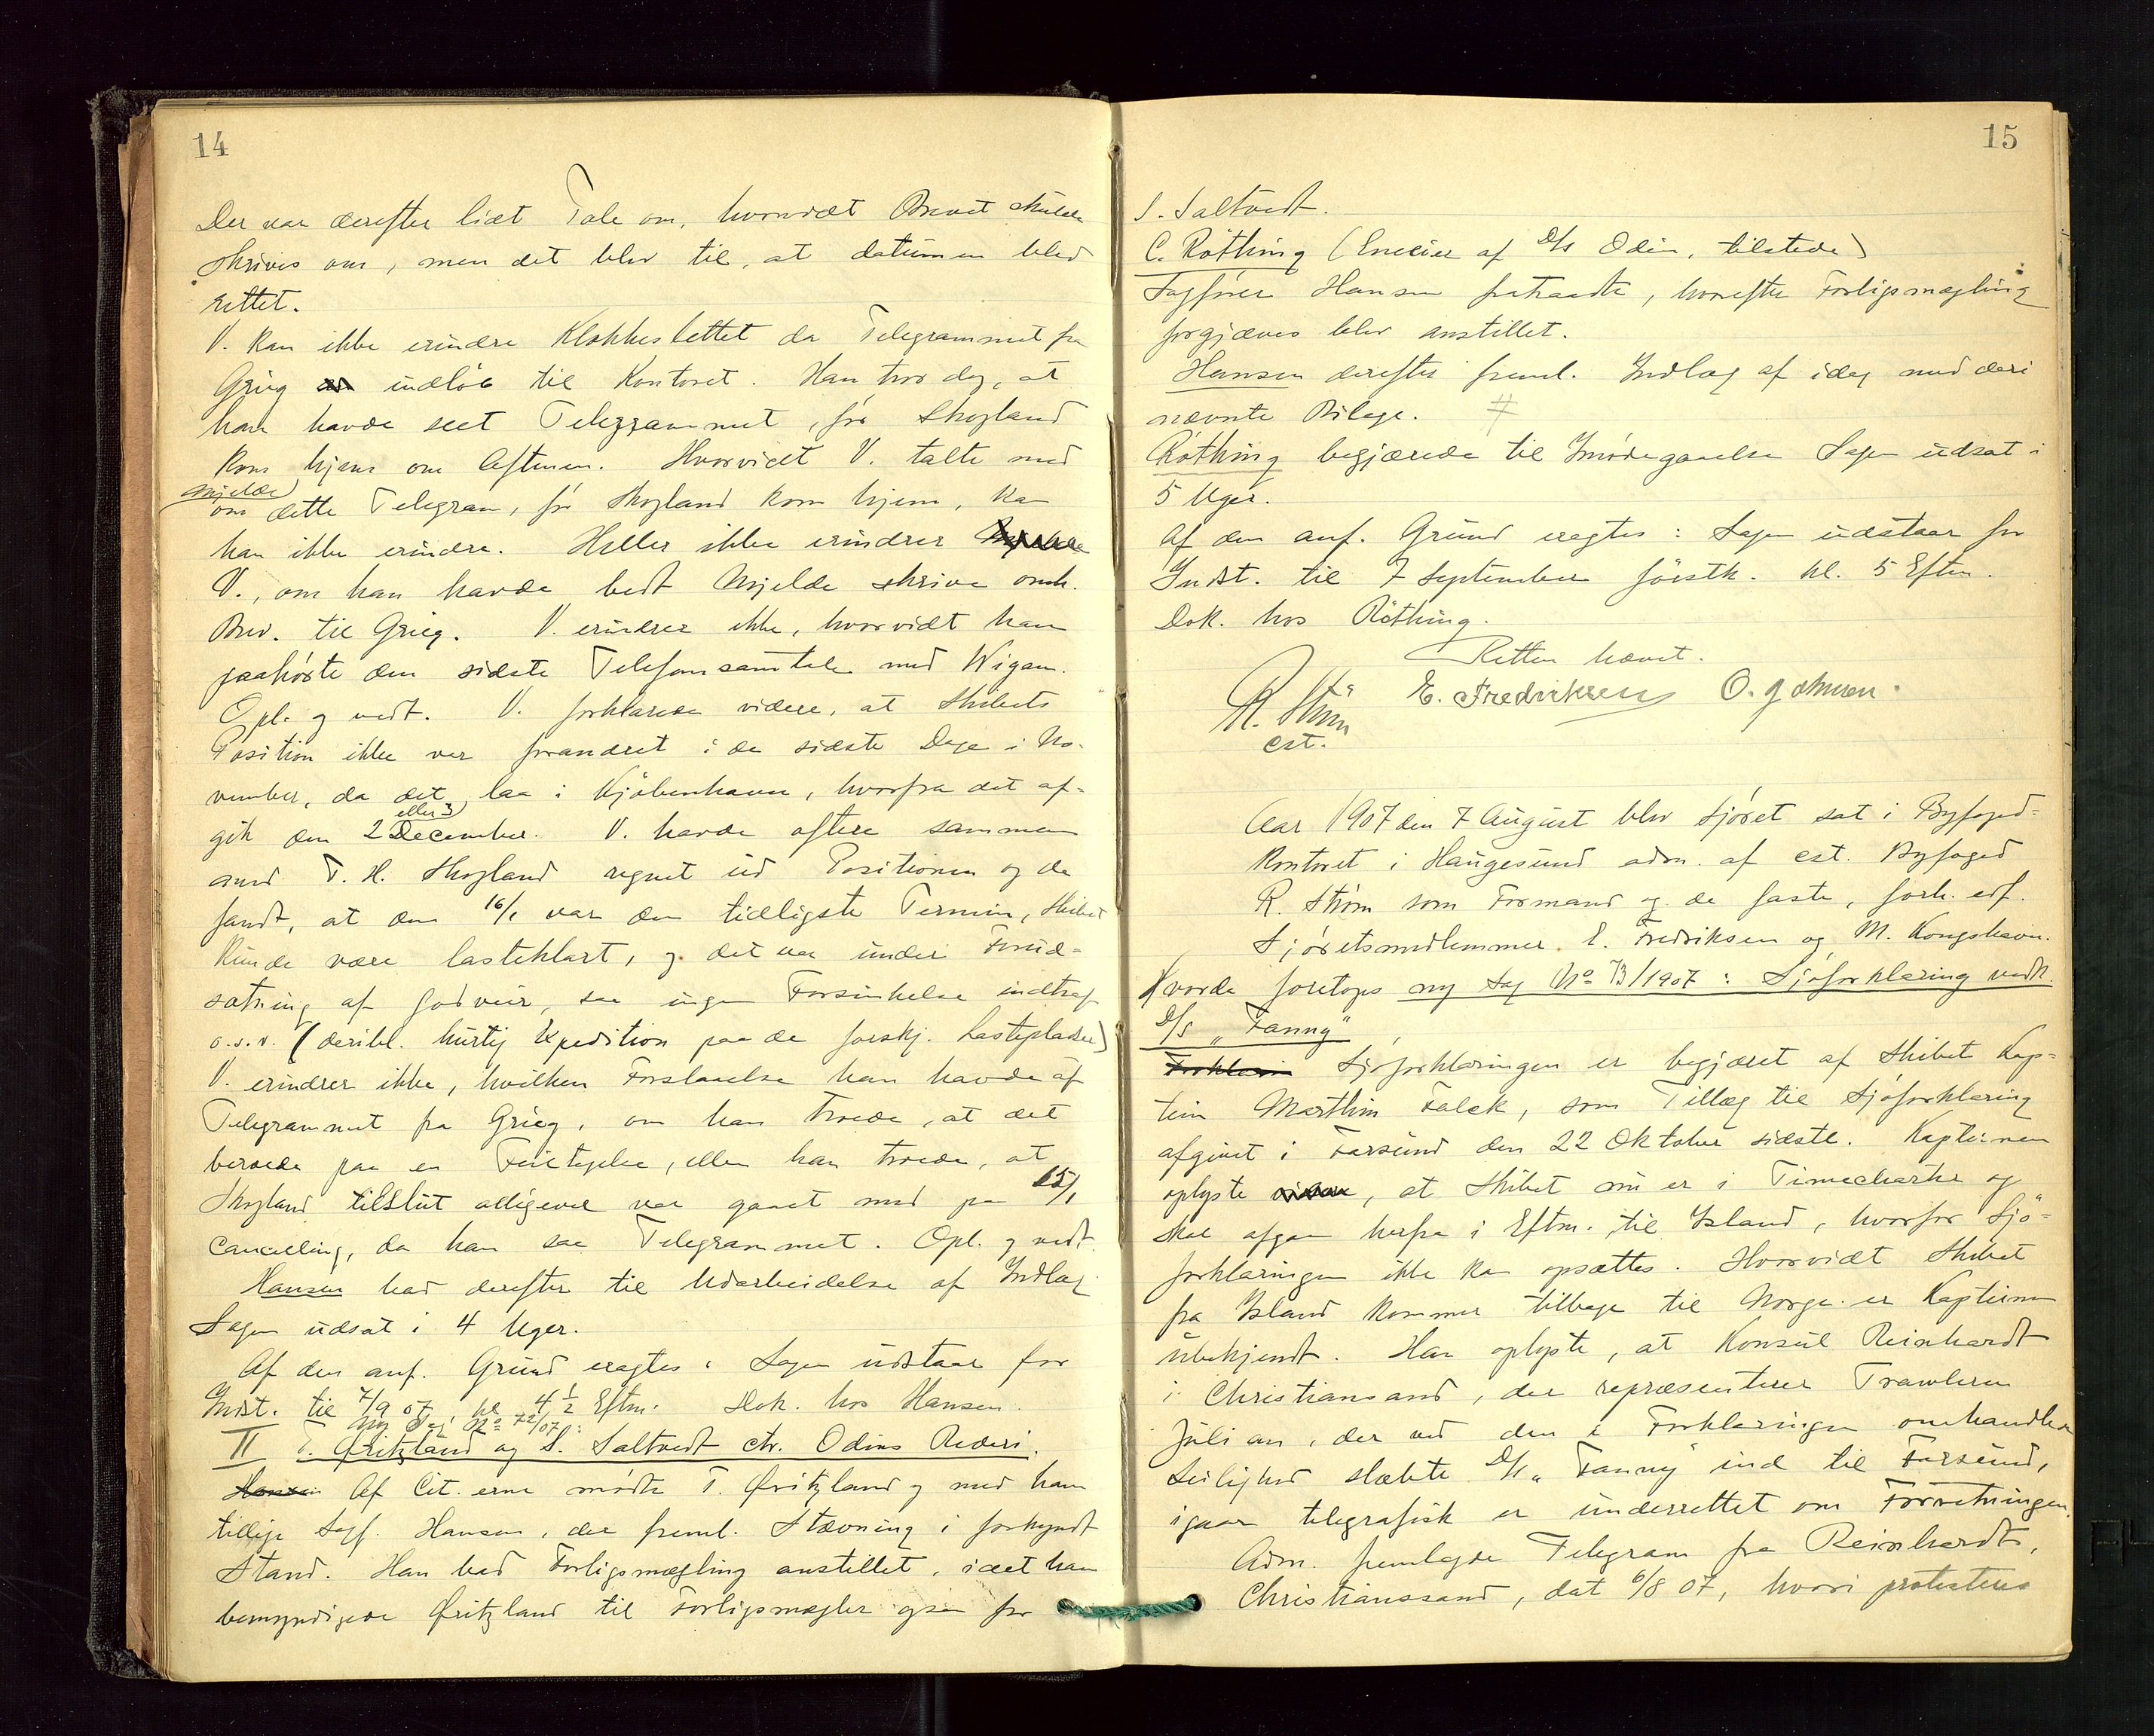 14
Der var derefter lidt Tale om, hvorvidt Brevet skulde
skrives om, men det blev til, at datumen blev
rettet.
V. kan ikke erindre Klokkeslettet da Telegrammet fra
Grieg indløb til Kontoret. Han tror dog, at
han havde seet Telegrammet, før Skogland
kom hjem om Aftenen. Hvorvidt V. talte med
Mjelde
om dette Telegram, før Skogland kom hjem, kan
han ikke erindre. Heller ikke erindrer
V., om han havde bedt Mjelde skrive omh.
Brev. til Grieg. V. erindrer ikke, hvorvidt han
paahørte den sidste Telefonsamtale med Wigam.
Opl. og vedt. V. forklarede videre, at Skibets
Position ikke var forandret i de sidste Dage i No-
vember, da det laa i Kjøbenhavn, hvorfra det af-
eller 3
gik den 2 December. V. havde oftere sammen
med T. H. Skogland regnet ud Positionen og de
fandt, at den 16/1 var den tidligste Termin, Skibet
kunde være lasteklart, og det var under Forud-
sætning af godveir, saa ingen Forsinkelse indtraf
o.s.v. (deribl. hurtig Expedition paa de forskj. Lastepladse)
V. erindrer ikke, hvilken Forstaaelse han havde af
Telegrammet fra Grieg, om han troede, at det
beroede paa en Feiltagelse, eller han troede, at
Skogland tilslut alligevel var gaaet med paa 15/1
Cancelling, da han saa Telegrammet. Opl. og vedt.
Hansen bad derefter til Udarbeidelse af Indlæg
Sagen udsat i 4 Uger.
Af den anf. Grund eragtes: Sagen udstaar for
Indst. til 7/9 07 kl 4 1/2 Eftm. Dok. hos Hansen.
Ny Sag No 72/07:
II T. Øritzland og S. Saltvedt ctr. Odins Rederi.
Hansen Af Cit. erne mødte T. Øritzland og med ham
tillige Sagf. Hansen, der freml. Stævning i forkyndt
Stand. Han bad Forligsmægling anstillet, idet han
bemyndigede Øritzland til Forligsmægler ogsaa for
15
S. Saltvedt.
C. Röthing (Eneeier af D/S Odin, tilstede)
Sagfører Hansen fratraadte, hvorefter Forligsmægling
forgjæves blev anstillet.
Hansen derefter freml. Indlæg af idag med deri
nævnte Bilage. #
Röthing begjærede til Imødegaaelse Sagen udsat i
5 Uger.
Af den anf. Grund eragtes: Sagen udstaar for
Indst. til 7 September førstk. kl. 5 Eftm.
Dok. hos Röthing.
Retten hævet.
R. Strøm E. Fredriksen O. Johnsen.
cst.
Aar 1907 den 7 August blev Sjøret sat i Byfoged-
kontoret i Haugesund adm. af cst. Byfoged
R. Strøm som Formand og de faste, forh. edf.
Sjøretsmedlemmer. E. Fredriksen og M. Kongshavn.
Hvorda foretoges ny Sag No 73/1907: Sjøforklaring vedk.
D/S "Fanny"
Forklarin Sjøforklaringen er begjæret af Skibets Kap-
tein Marthin Falck, som Tillæg til Sjøforklaring
afgivet i Farsund den 22 Oktober sidstl. Kapteinen
oplyste, at Skibet nu er i Timecharter og
skal afgaa herfra i Eftm. til Island, hvorfor Sjø-
forklaringen ikke kan opsættes. Hvorvidt Skibet
fra Island kommer tilbage til Norge er Kapteinen
ubekjendt. Han oplyste, at Konsul Reinhardt
i Christiansand, der repræsenterer Trawleren
Julian, der ved den i Forklaringen omhandlede
Leilighed slæbte D/S "Fanny" ind til Farsund,
igaar telegrafisk er underrettet om Forretningen.
Adm. fremlagde Telegram fra Reinhardt,
Christianssand, dat 6/8 07, hvori protesteres